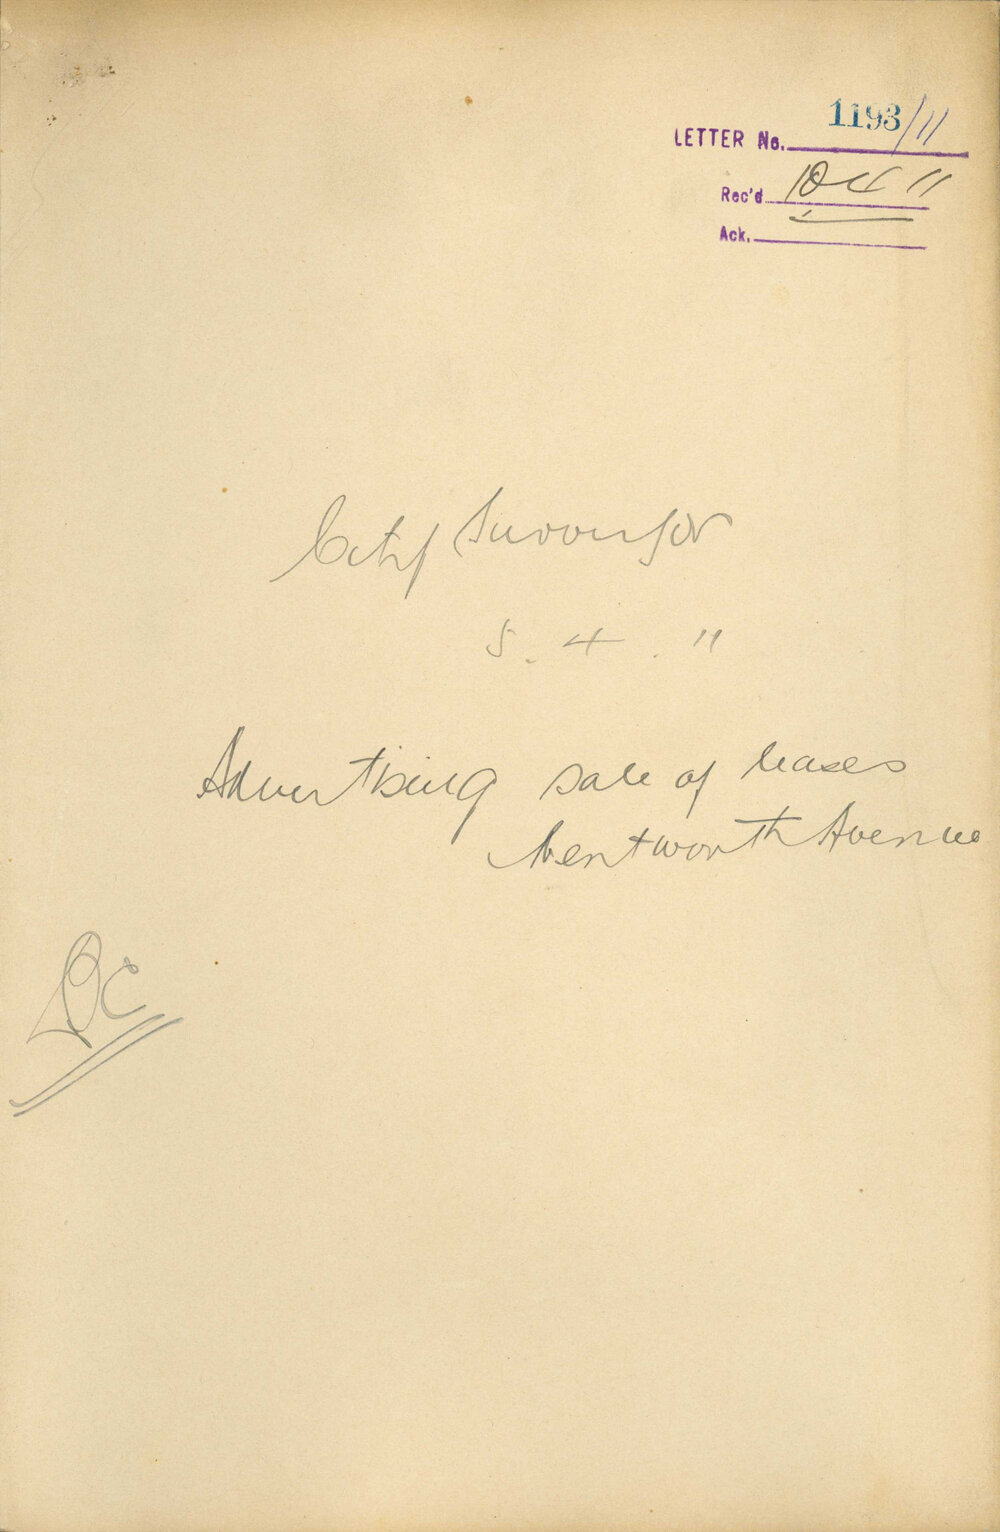 LETTER No. 1193/11
Rec'd 10 4 11
Ack.
City Surveyor
5. 4. 11
Advertising sale of leases
Wentworth Avenue